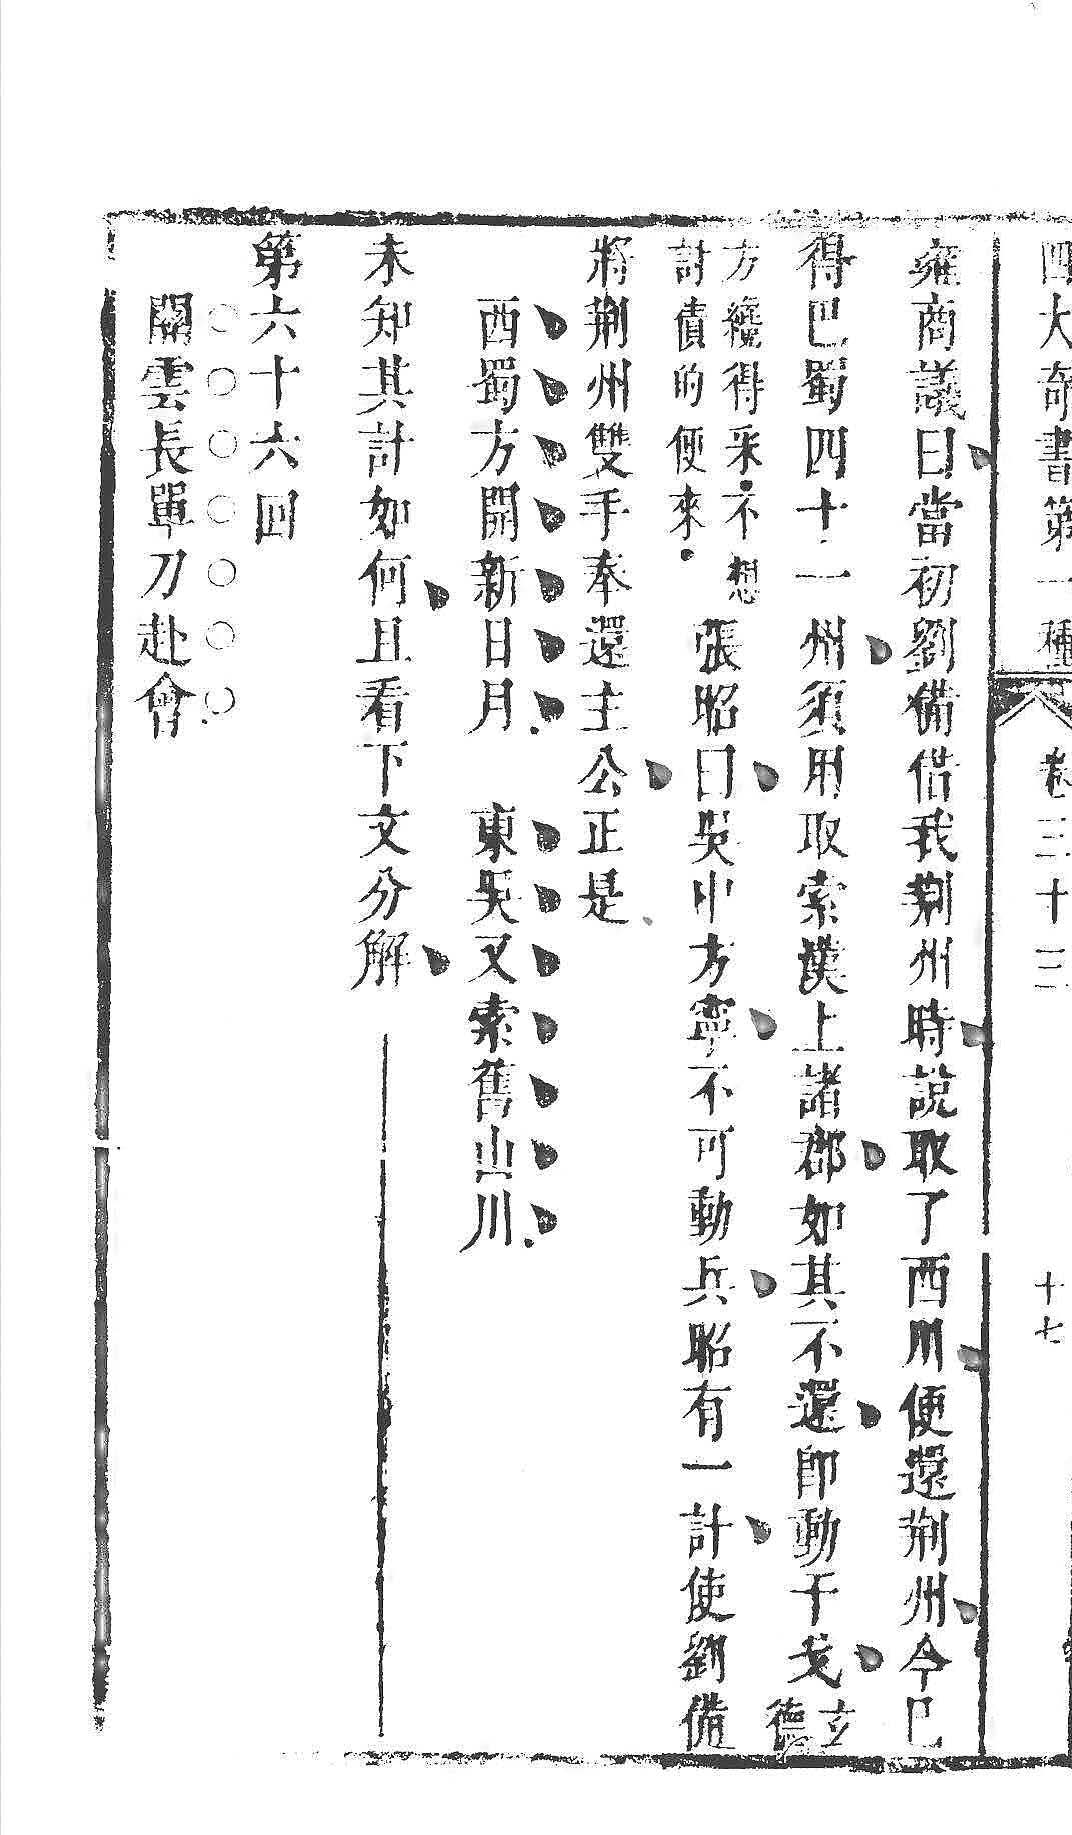 四大奇書第一種 卷三十三 十七
雍商議曰當初劉備借我荆州時說取了西川便還荆州今巳
得巴蜀四十一州須用取索漢上諸郡如其不還卽動干戈玄德
方纔得采不想討債的便來張昭曰吳中方寧不可動兵昭有一計使劉備
將荆州雙手奉還主公正是
西蜀方開新日月 東吳又索舊山川
未知其計如何且看下文分解
第六十六回
關雲長單刀赴會